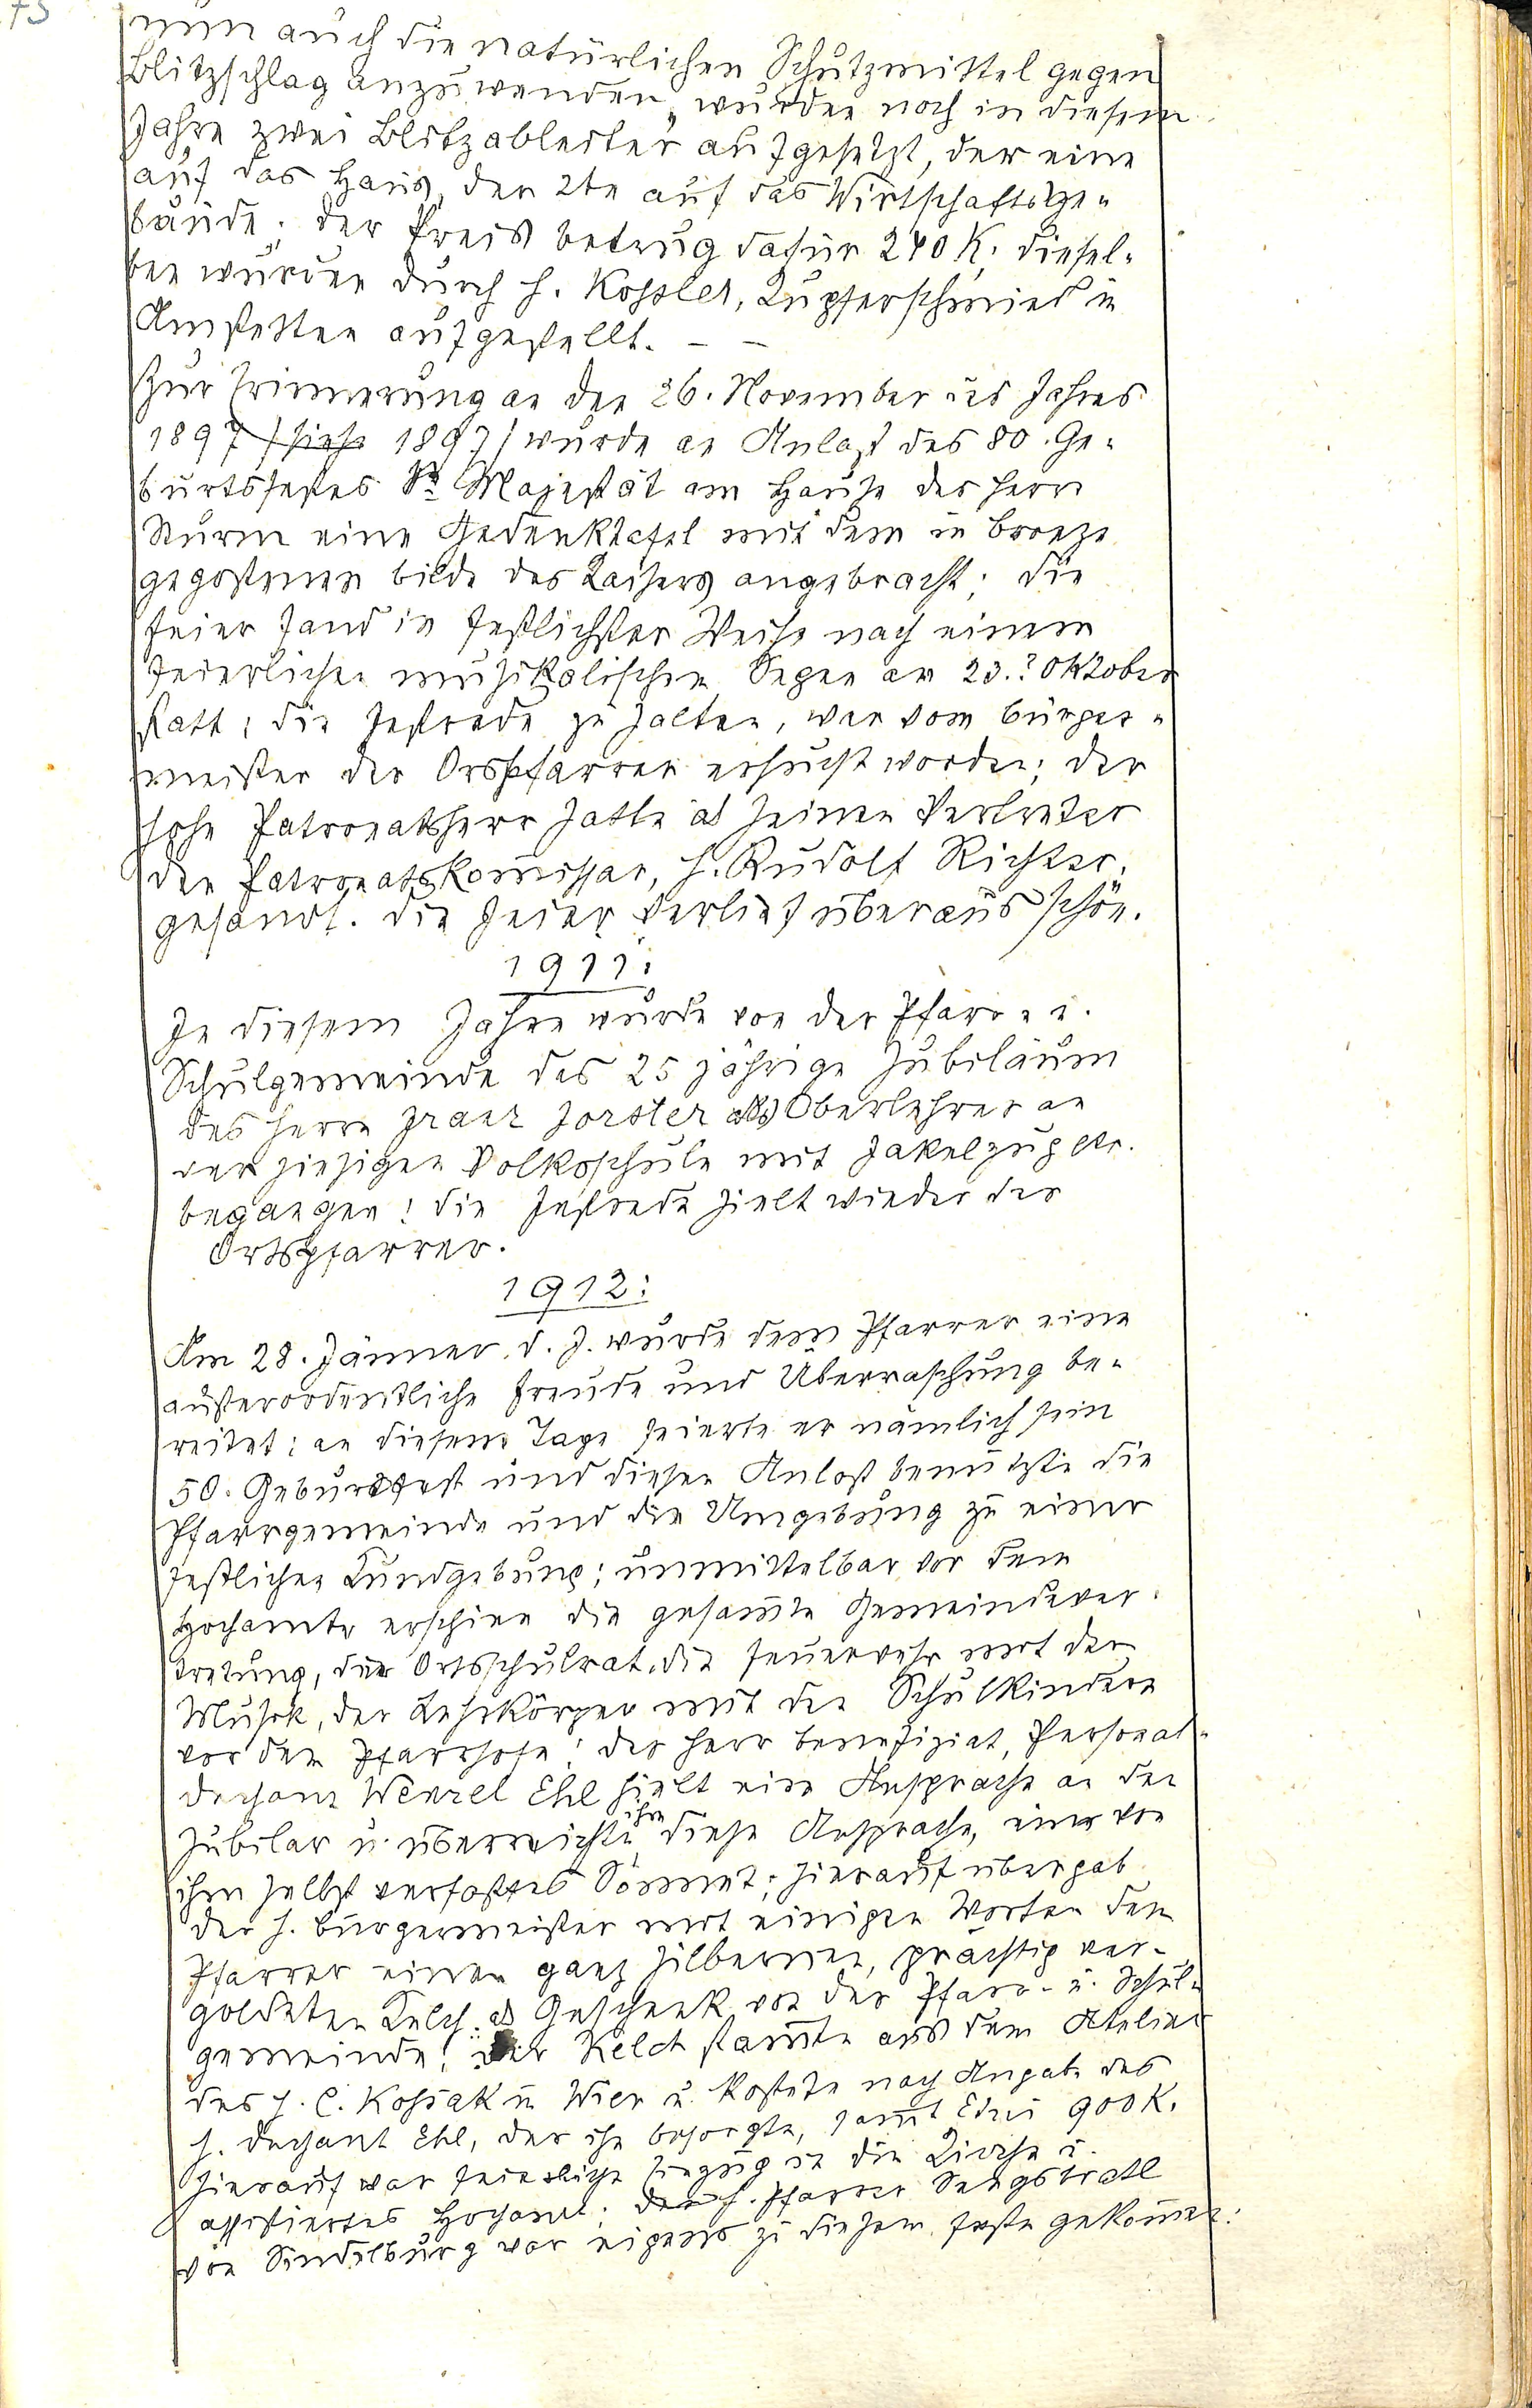 75
nun auch die natürlichen Schutzmittel gegen
Blitzschlag anzuwenden, wurden noch in diesem
Jahre zwei Blitzableiter aufgesetzt, der eine
auf das Haus, der 2te auf das Wirtschaftsge-
bäude. der Preis betrug dafür 240 K. diesel-
ben wurden durch H. Kossler, Kupferschmied in
Amstetten aufgestellt. – –
Zur Erinnerung an den 26. November des Jahres
1897 /siehe 1897/ wurde an Anlaß des 80. Ge-
burtsfestes Sr Majestät am Hause des Herrn
Sturm eine Gedenktafel mit dem in Bronze
gegossenen Bilde des Kaisers angebracht; die
Feier fand in festlichster Weise nach einem
feierlichen musikalischen Segen am 23.? Oktober
statt; die Festrede zu halten, war vom Bürger-
meister der Orspfarrer ersucht worden; der
hohe Patronatsherr hatte als seinen Vertreter
den Patronatskom̄issar, H. Rudolf Richter,
gesandt. die Feier verlief überaus schön.
1911:
In diesem Jahre wurde von der Pfarr- u.
Schulgemeinde das 25 jährige Jubiläum
des Herrn Franz Forster als Oberlehrer an
der hiesigen Volksschule mit Fakelzug etc.
begangen; die Festrede hielt wieder der
Ortspfarrer.
1912:
Am 28. Jänner d. J. wurde dem Pfarrer eine
außerordentliche Freude und Überraschung be-
reitet; an diesem Tage feierte er nämlich sein
50. Geburtsfest und diesen Anlaß benützte die
Pfarrgemeinde und die Umgebung zu einer
festlichen Kundgebung; unmittelbar vor dem
Hochamte erschien die gesam̄te Gemeindever-
tretung, der Ortsschulrat, die Feuerwehr mit der
Musik, der Lehrkörper mit den Schulkindern
vor dem Pfarrhofe; der Herr Benefiziat, Personal-
dechant Wenzel Ehl hielt eine Ansprache an den
Jubilar u. überreichte ihm diese Ansprache, einer von
ihm selbst verfasstes Sonnet; hierauf übergab
der H. Bürgermeister mit einigen Worten dem
Pfarrer einen ganz silbernen, prächtig ver-
goldeten Kelch als Geschenk von der Pfarr- u. Schul-
gemeinde; der Kelch stam̄te aus dem Atelier
des H. C. Kossak in Wien u. kostete nach Angabe des
H. Dechant Ehl, der ihn besorgte, sam̄t Etui 900 K.
Hierauf war feierliche Einzug in die Kirche u.
assistiertes Hochamt; der H. Pfarrer Sengstratl
von Sindelburg war eigens zu diesem Feste gekom̄en.